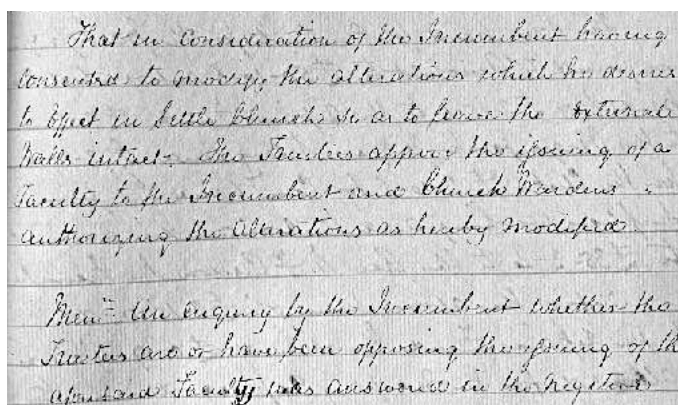 That in Consideration of the Incumbent having
consented to modify the alterations which he desires
to effect in Settle Church so as to leave the external
Walls intact. The Trustees approve the issuing of a
Faculty to the Incumbent and Church Wardens.
authorizing the alterations as hereby modified.
Mem:- An enquiry by the Incumbent whether the
Trustees are or have been opposing the issuing of th
aforesaid Faculty was answered in the negative